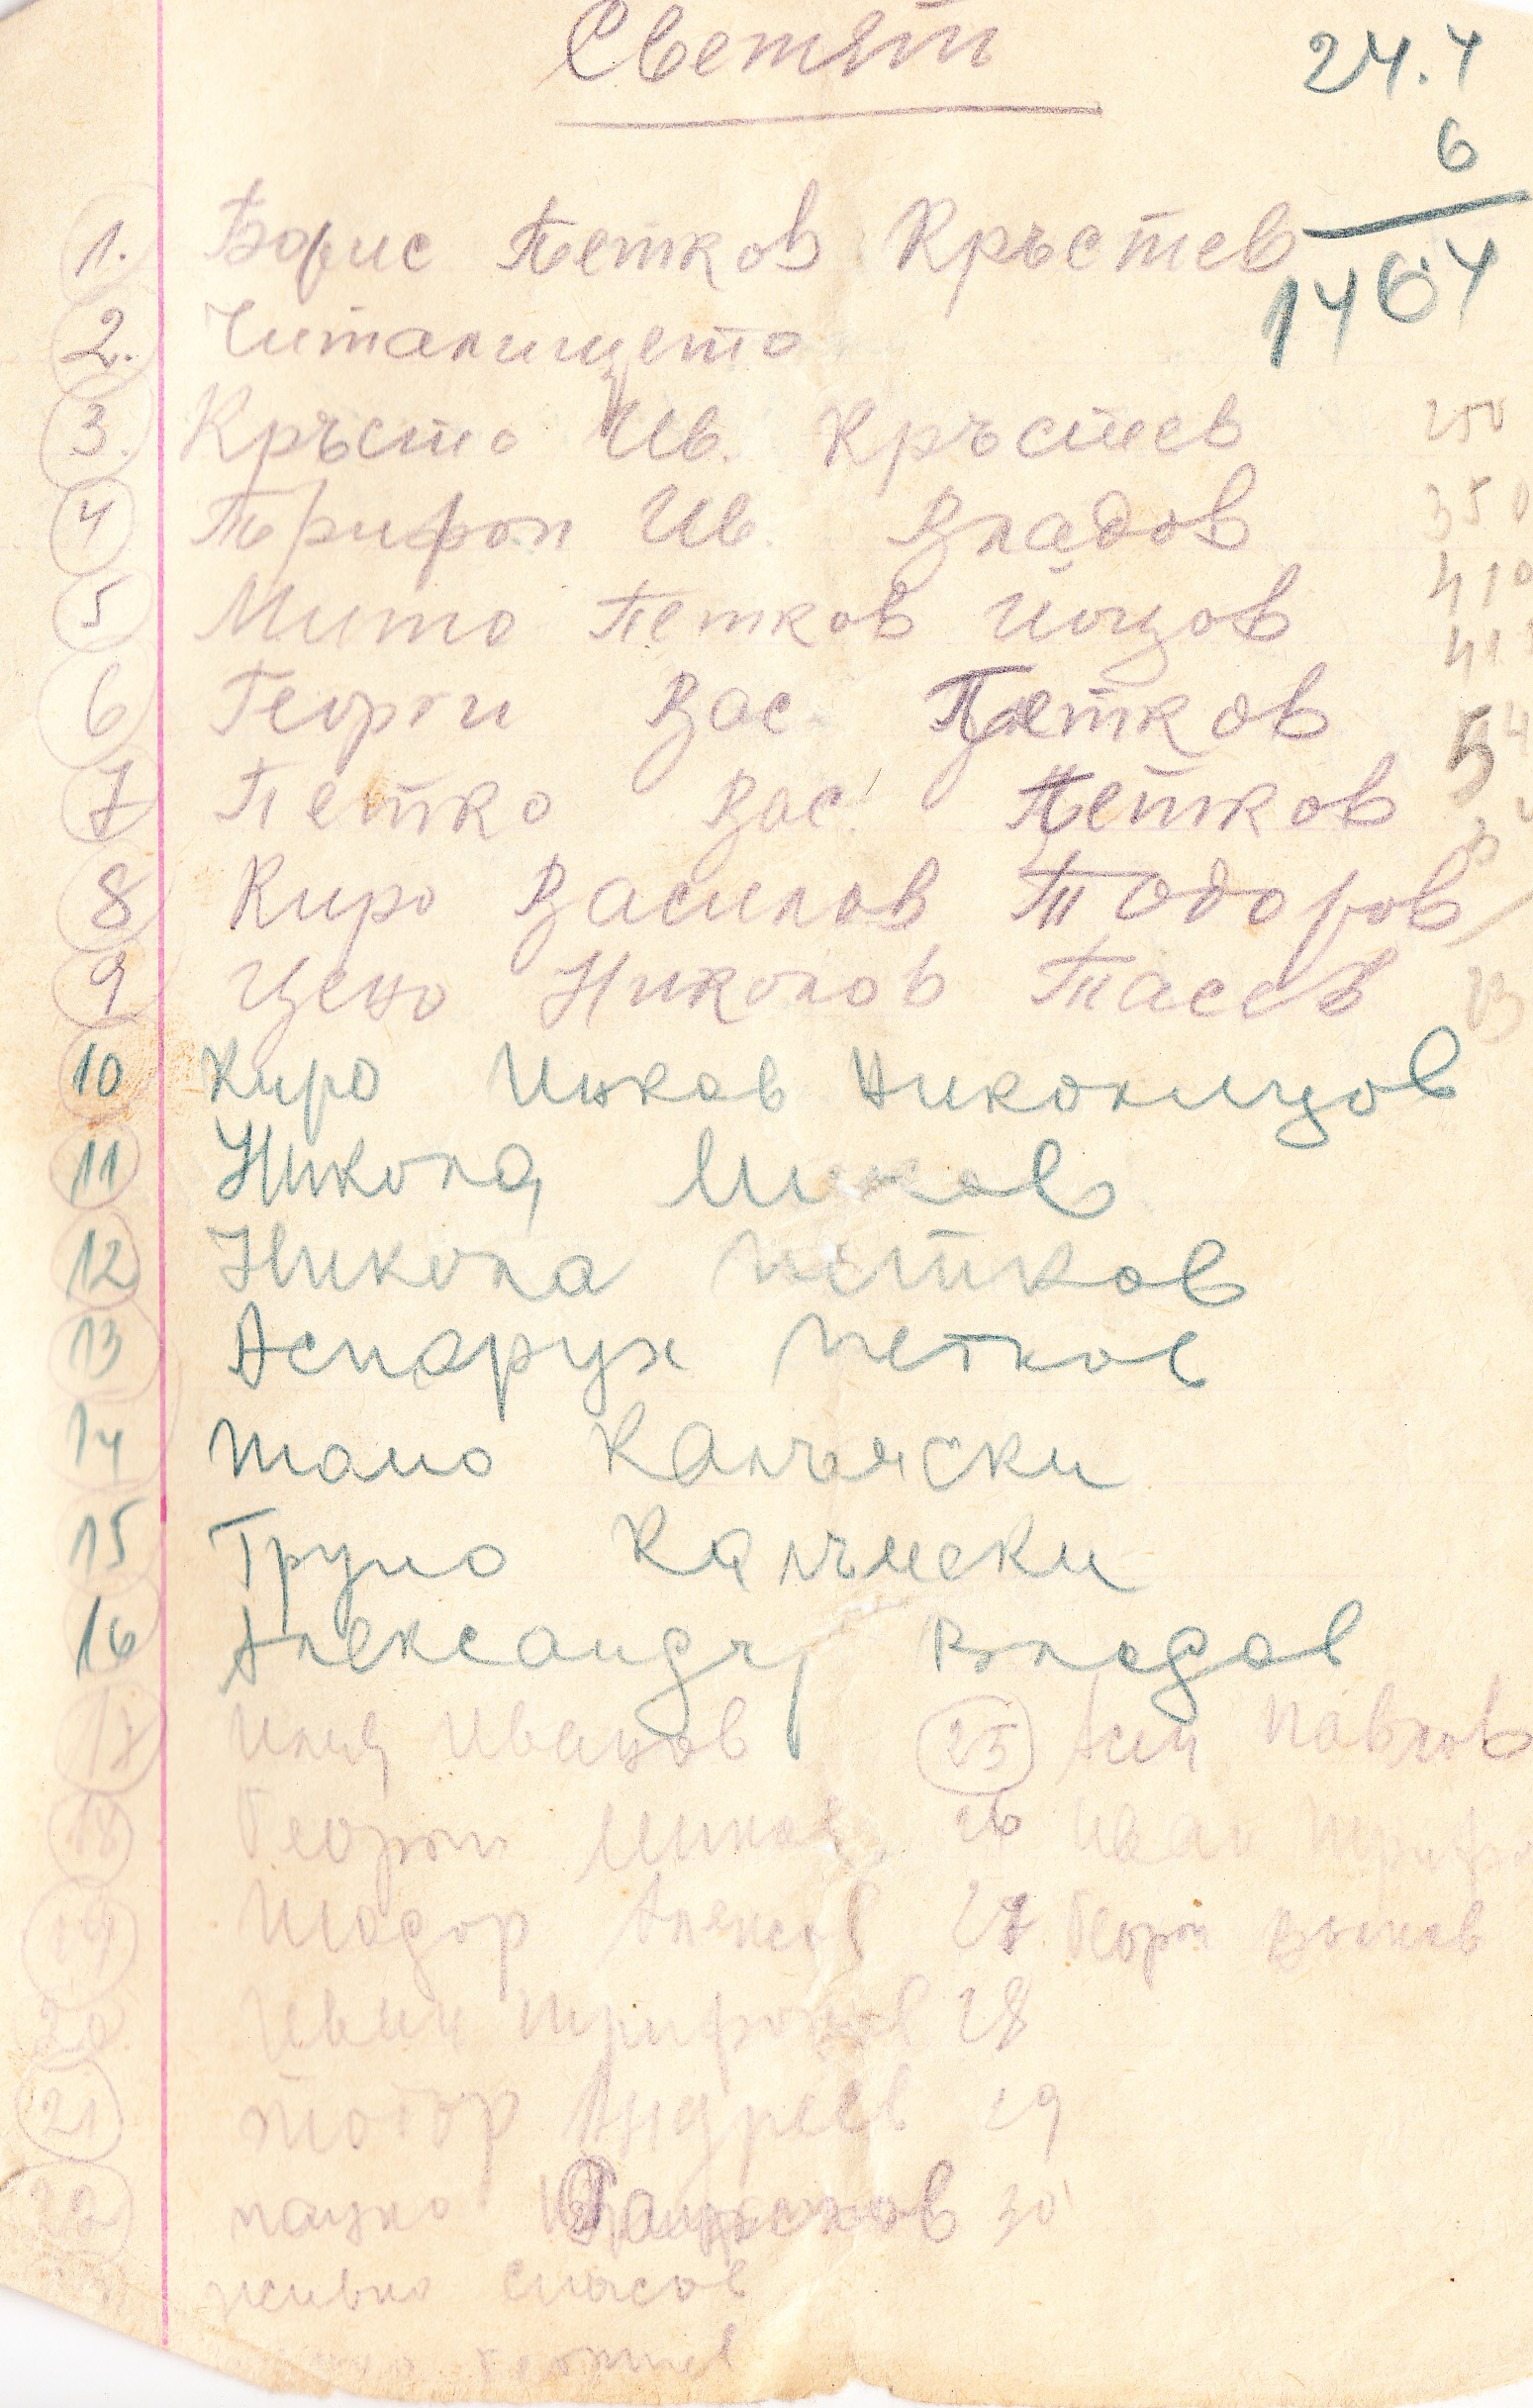 Светят
24.4
6
1464
1. Борис Петков Кръстев
2. Читалището
3. Кръсто Ив. Кръстев
250
4 Трифон Ив. Владов
350
5 Мито Петков Йоцов
410
6 Георги Вас. Петков
7 Петко Вас. Петков
8 Киро Василов Тодоров
9 Цено Николов Тасев
10 Киро Инков Николицов
11 Никола
12 Никола Петков
13 Аспарух Петков
14 Томо Калчински
15 Груио Калчински
16 Александър Владов
17 Илия Иванов 25 Асен Павлов
18 Георги 26 Иван
19 Тодор 27 Георги
20 Иван Трифонов 28
21 Тодор Андреев 29
22 30
живко спасов